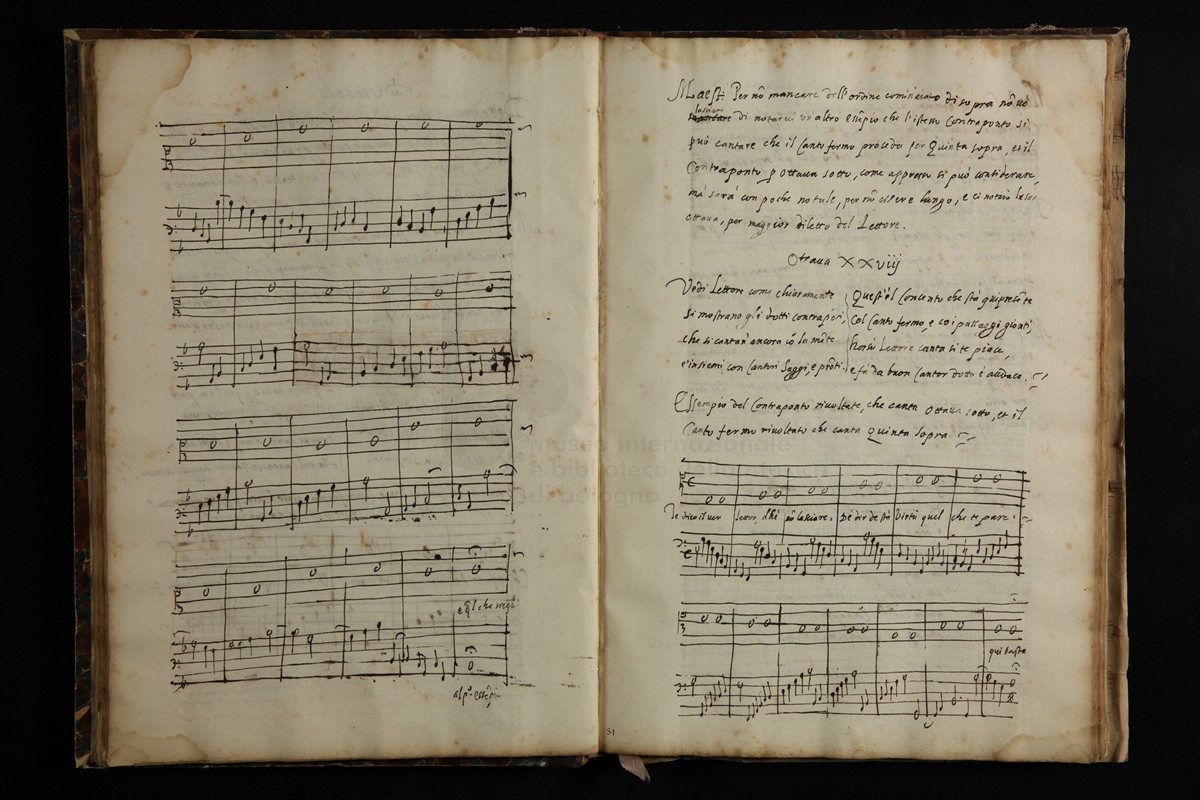 e ql che segu
al p.º essēpi
Maest. Per nō mancare dell'ordine cominciato di sopra nō vò
lasciare
di notarui vn'altro essēpio che l'istesso Contraponto si
può cantare che il Canto fermo proceda per Quinta sopra, et il
Contraponto p Ottaua sotto, come appresso si può considerare,
mà sarà con poche notule, per nō essere lungo, e ci notarò la
ottaua, per maggior diletto del Lettore.
Ottaua XXViij
Vedi Lettore come chiaramente
si mostrano gl'i dotti contraponti,
che si cantan' ancora cō la mēte
e'insiemi con Cantori Saggi, e prōti.
Quest'è'l Concento che stà qui presēte
Col Canto fermo, e coi passaggi gionti,
Horsù Lettore canta si te piace,
e fa da buon Cantor dotto e audace.
Essempio del Contraponto riuoltato, che canta ottaua sotto, et il
Canto fermo riuoltato che canta Quinta sopra
Se dico il uer lettor, dhè nō lasciare, De dir de stà Virtù quel che te pare.
qui basta
51
museo internazionale
e biblioteca della musica
di bologna